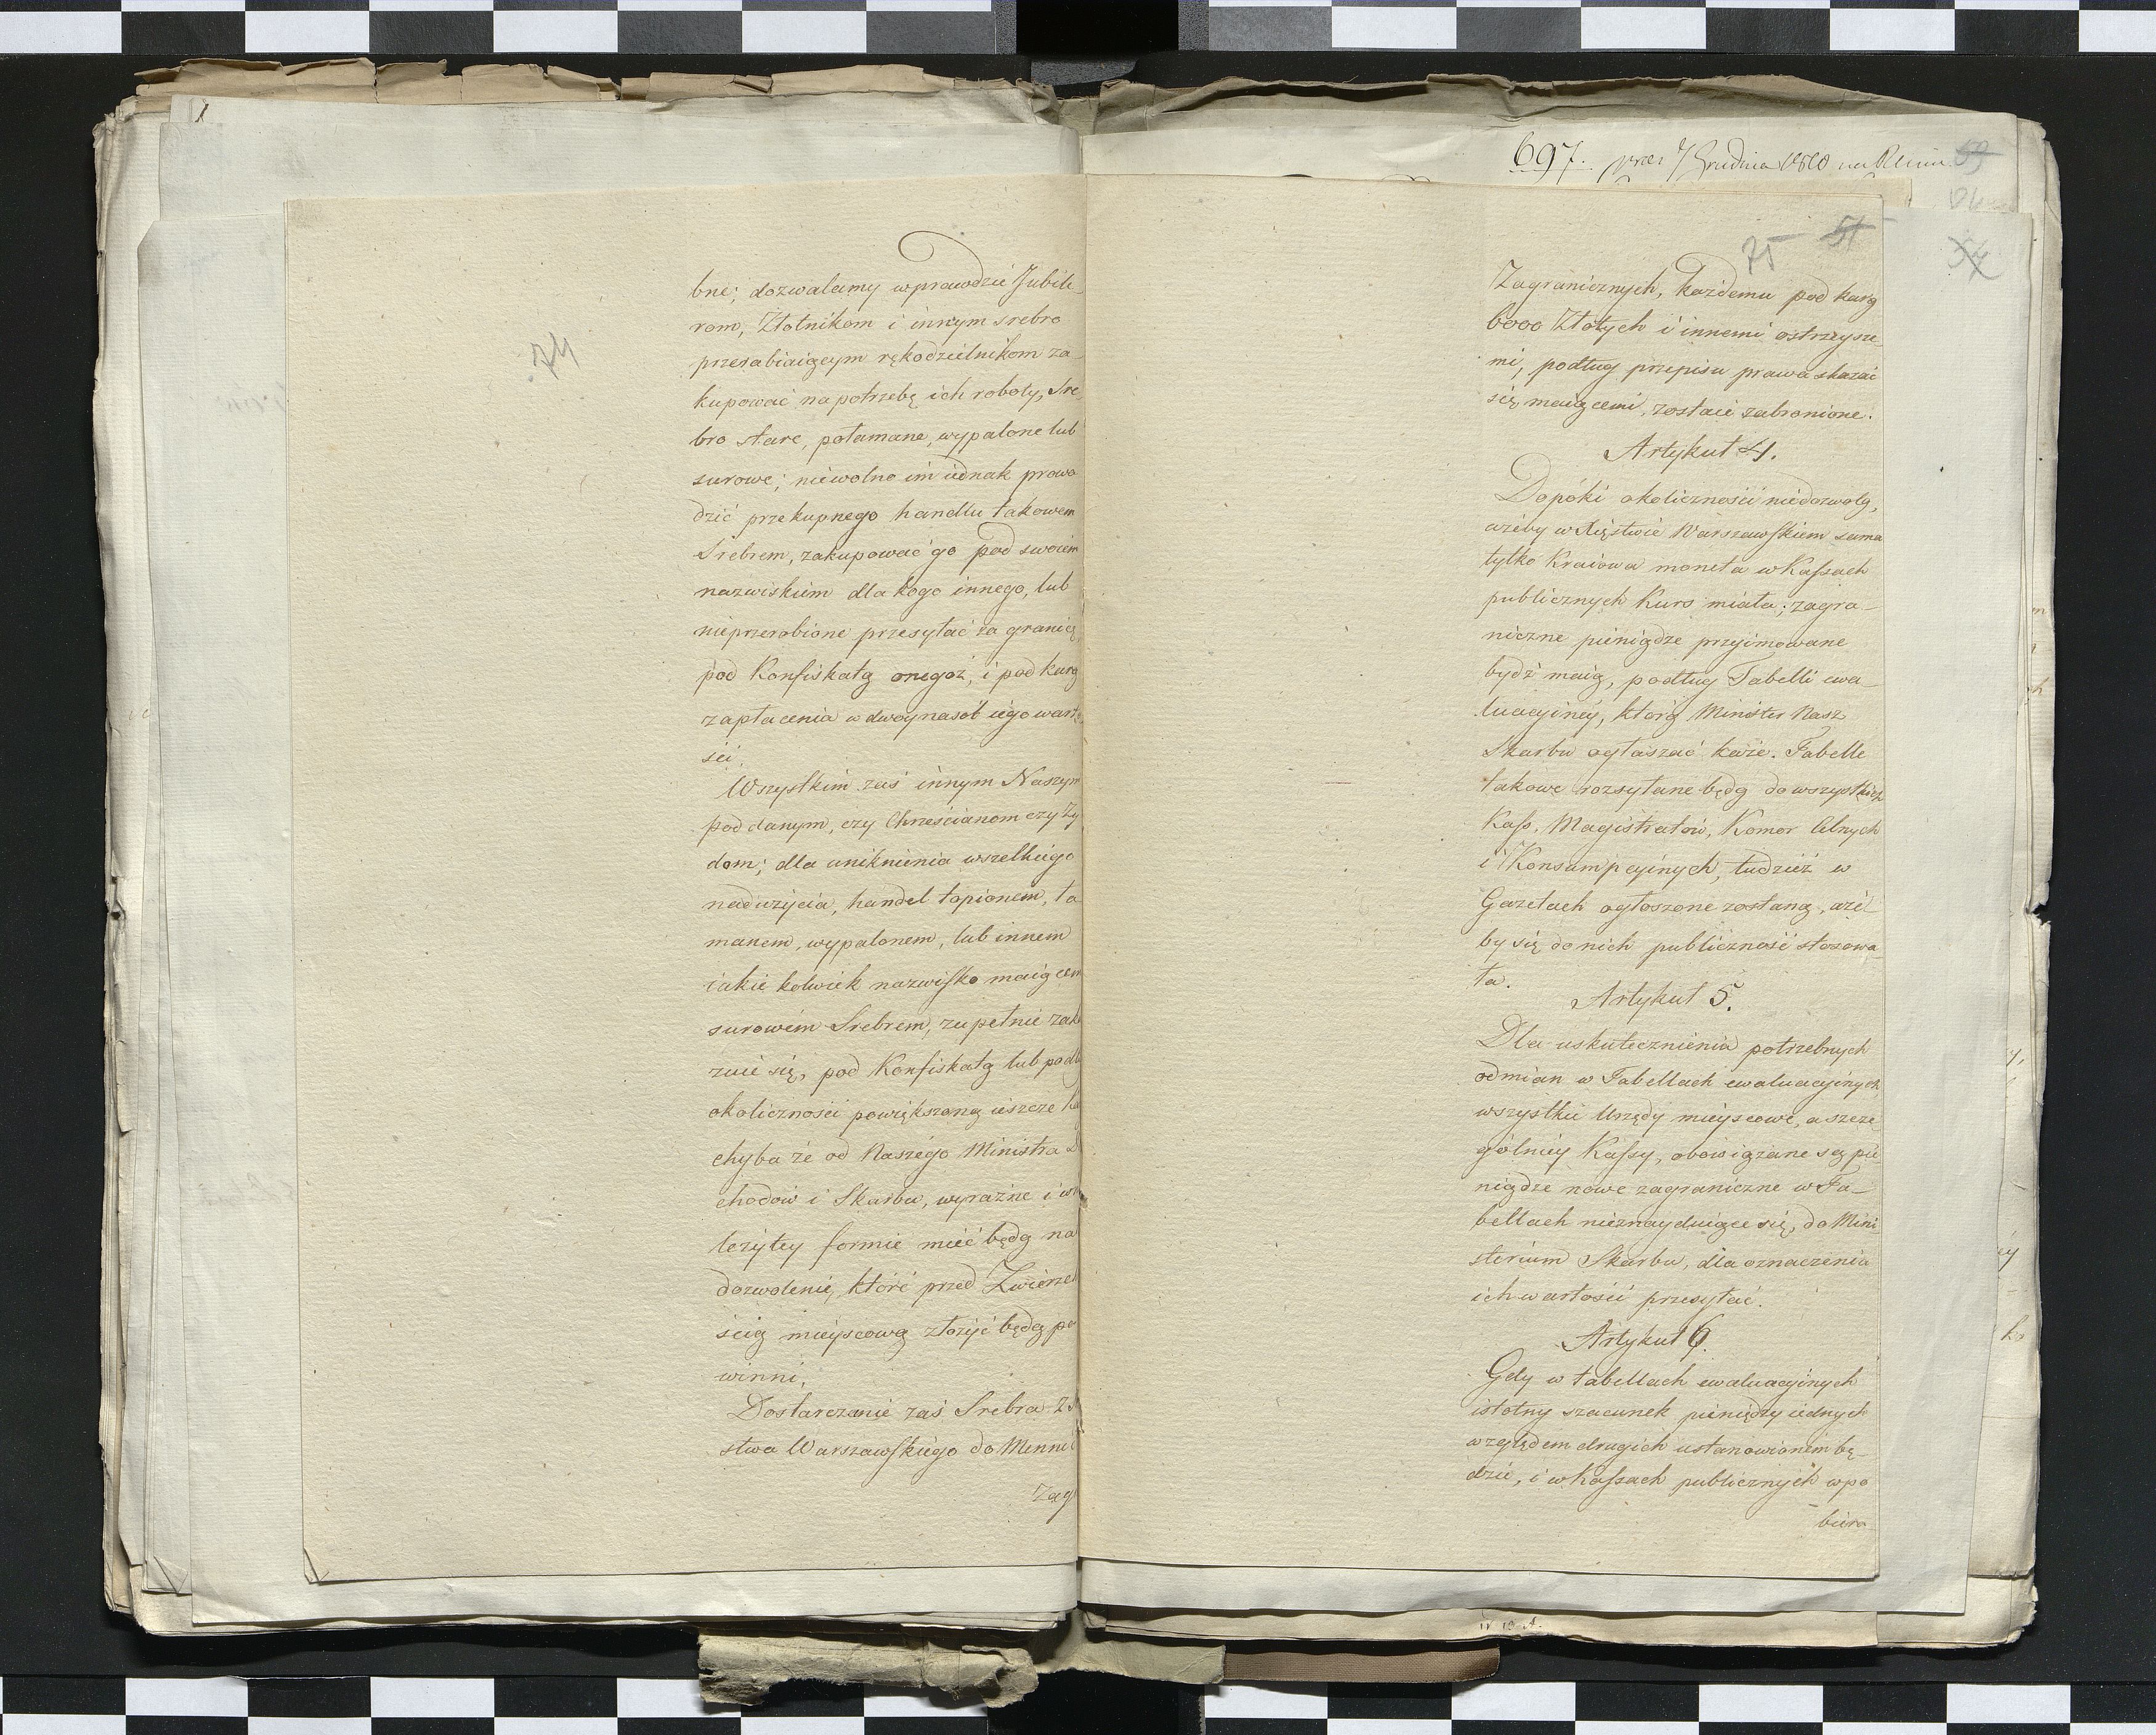 74
bne; dozwalamy wprawdzie Jubile-
rom, Złotnikom i innym srebro
przerabiaiącym rękodzielnikom za-
kupować na potrzebę ich roboty, Sre-
bro stare, połamane, wypalone lub
surowe; niewolno im iednak prowa
dzić przekupnego handlu takowem
Srebrem, zakupować go pod swoiem
nazwiskiem dla kogo innego, lub
nieprzerobione przesyłać za granicę,
pod Konfiskatą onegoż, i pod karą
zapłacenia w dwoynasób iego warto
ści.
Wszystkim zaś innym Naszym
poddanym, czy Chrześcianom czy Ży
dom; dla uniknienia wszelkiego
nadużycia, handel topionem, ła
manem, wypalonem, lub innem
iakie kolwiek nazwisko maiącem
surowém Srebrem, zupełnie zak
zuie się, pod Konfiskatą lub podł
okoliczności powiększoną ieszcze ka
chyba że od Naszego Ministra
chodów i Skarbu, wyraźne i w
leżytey formie mieć będą na
dozwolenie, które przed Zwierzch
ścią mieyscową złożyć będą po
winni.
Dostarczanie zaś Srebra z
stwa Warszawskiego do Mennic
Zag
697. przez 7 Grudnia 1810 na
59
54
75 51
Zagranicznych, każdemu pod karą
6000 Złotych i innemi ostrzeysze-
mi, podług przepisu prawa skazać
się maiącemi, zostaie zabronione.
Artykuł 4.
Dopóki okoliczności niedozwolą,
ażeby w Xięstwie Warszawskiem sama
tylko Kraiowa moneta w Kassach
publicznych Kurs miała; zagra-
niczne pieniądze przyimowane
bydź maią, podług Tabelli ewa-
luacyiney, którą Minister Nasz
Skarbu ogłaszać każe. Tabelle
takowe rozsyłane będą do wszystkich
Kass, Magistratów, Komor Celnych
i Konsumpcyinych, tudzież w
Gazetach ogłoszone zostaną, aże-
by się do nich publiczność stosowa-
ła.
Artykuł 5.
Dla uskutecznienia potrzebnych
odmian w Tabellach ewaluacyinych
wszystkie Urzędy mieyscowe, a szcze
gólniey Kassy, obowiązane są pie-
niądze nowe zagraniczne w Ta-
bellach nieznayduiące się, do Mini
sterium Skarbu, dla oznaczenia
ich wartości przesyłać.
Artykuł 6.
Gdy w tabellach ewaluacyinych
istotny szacunek pieniędzy iednych
względem drugich ustanowionem bę-
dzie, i w Kassach publicznych w po
biera